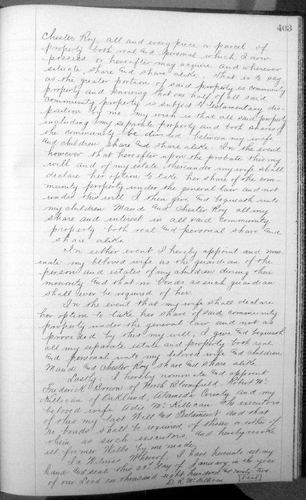 403
Chester Roy, all and every piece or parcel of
property both real and personal which I now
possess or hereafter may acquire and wherever
situate, share and share alike. That is to say
as the greater portion of said property is community
property and knowing that one half of said
community property is subject to testamentary dis-
position by me, my wish is that all said property
including my separate property and both shares of
the community be divided between my wife
and children share and share alike. In the event
however that hereafter upon the probate this my
will and of my estate hereunder my wife shall
declare her option to take her share of the com-
munity property under the general law and not
under this will I then give and bequeath unto
my children Maud and Chester Roy all my
share and interest in all said community
property both real and personal share and
share alike
In either event I hereby appoint and nomi-
nate my beloved wife as the guardian of the
person and estates of my children during their
minority and that no bonds as such guardian
shall ever be required of her.
In the event that my wife shall declare
her option to take her share of said community
property under the general law and not as
provided by this my will, I give and bequeath
all my separate estate and property both real
and personal unto my beloved wife and children
Maud and Chester Roy share and share alike.
Lastly I hereby nominate and appoint
Frederick Brown of North Bloomfield, Robert M.
of Oakland, Alameda County and my
beloved wife to executors
of this my last Will and Testament and that
no bonds shall be required of these or either of
them as such executors and hereby revoke
all former Wills by me made.
In Witness Whereof, I have hereunto set my
hand and seal this day of January in the year
of our Lord one thousand eight hundred and ninety two
(Seal)